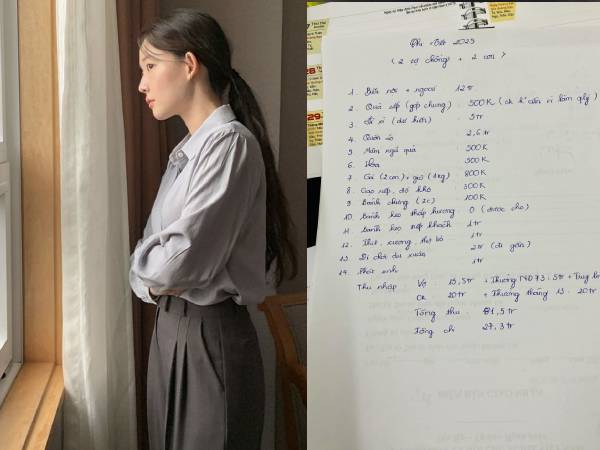 Chi tiêu 2025
( 2 vợ chồng + 2 con )
1. Biếu nội + ngoại 12tr
2. Quà sếp (góp chung) : 500K (ck k cần vì làm qly)
3. Lì xì (dự kiến) : 5tr
4. Quần áo : 2,6tr
5. Mâm ngũ quả : 500K
6. Hoa : 500K
7. Gà (2 con) + giò (1kg) : 800K
8. Gạo nếp, đỗ khô : 300K
9. Bánh chưng (2c) : 100K
10. Bánh kẹo thắp hương : 0 (được cho)
11. Bánh kẹo tiếp khách : 1tr
12. Thịt, xương, thịt bò : 1tr
13. Đi chơi du xuân : 2tr (đi gần)
14. Phát sinh : 1tr
Thu nhập Vợ : 15,5tr + Thưởng NĐ73 : 5tr +
Ck 20tr + Thưởng tháng 13 : 20tr
Tổng thu : 81,5tr
Tổng chi 27,3tr